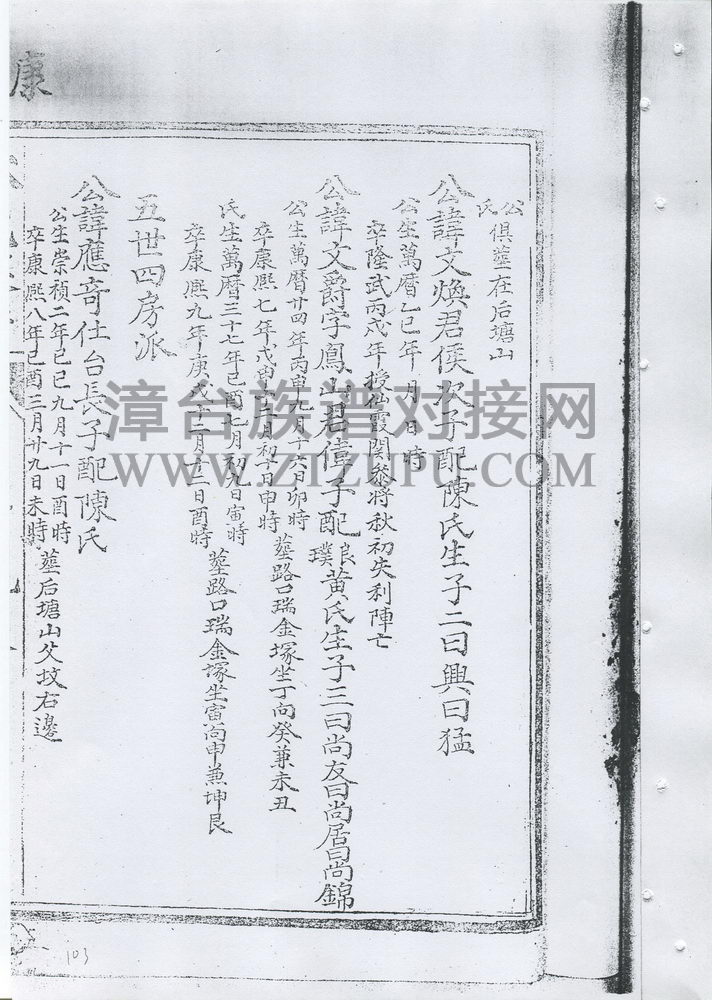 公氏 俱塟在后塘山
公諱文煥君侯次子配陳氏生子二曰興曰猛
公生萬曆乙巳年 月 日時
卒隆武丙戌年授仙霞関叅将秋初失利陣亡
公諱文爵字鳳山君僖子配良璞黄氏生子三曰尚友曰尚居曰尚錦
公生萬曆廿四年丙申九月十六日卯時
卒康熙七年戊申 月初 日申時
塟路口瑞金塚坐丁向癸兼未丑
氏生萬曆三十七年己酉七月初九日寅時
卒康熙九年庚戌十二月十二日酉時
塟路口瑞金塚坐寅向申兼坤艮
五世四房派
公諱應奇仕台長子配陳氏
公生崇禎二年己巳九月十一日酉時
卒康熙八年己酉三月廿九日未時
塟后塘山父坟右邊
康
103
漳台族谱对接网
WWW.ZTZUPU.COM